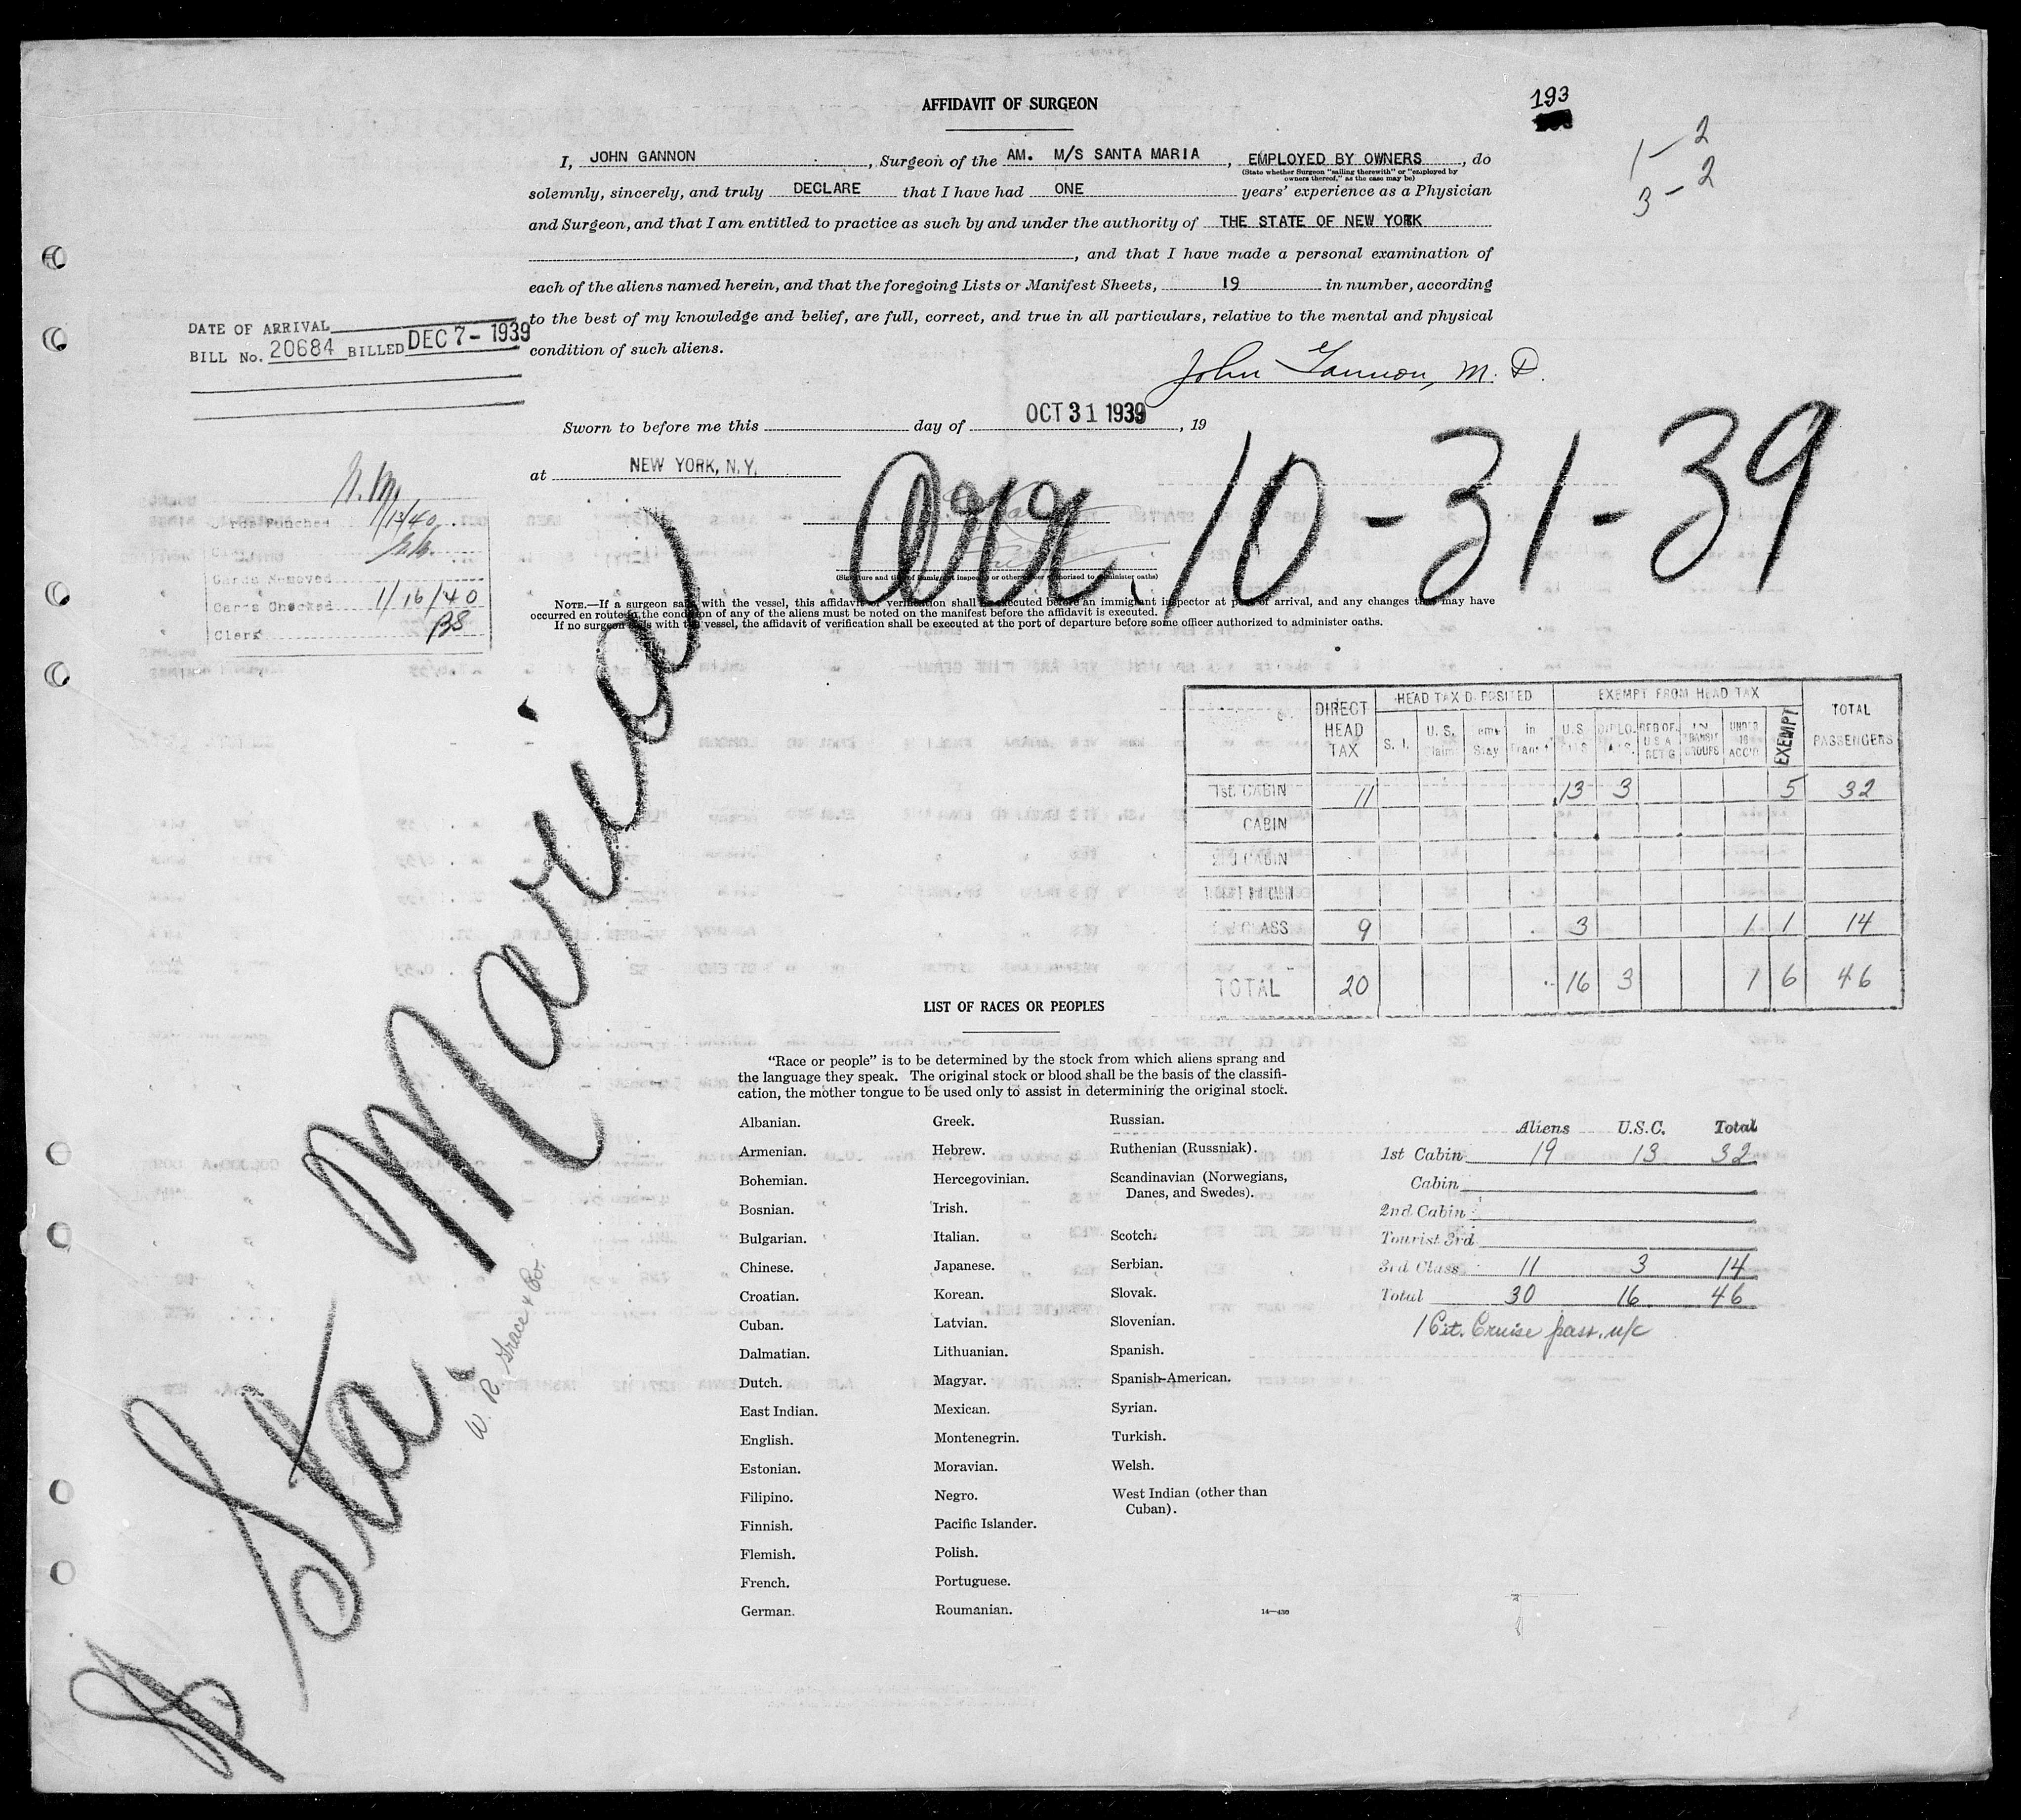 AFFIDAVIT OF SURGEON
193
1 - 2
3 - 2
I, JOHN GANNON, Surgeon of the AM. M/S SANTA MARIA, EMPLOYED BY OWNERS, do
(State whether Surgeon "sailing therewith" or "employed by
owners thereof," as the case may be)
solemnly, sincerely, and truly DECLARE that I have had ONE years' experience as a Physician
and Surgeon, and that I am entitled to practice as such by and under the authority of THE STATE OF NEW YORK
, and that I have made a personal examination of
each of the aliens named herein, and that the foregoing Lists or Manifest Sheets, 19 in number, according
to the best of my knowledge and belief, are full, correct, and true in all particulars, relative to the mental and physical
condition of such aliens.
DATE OF ARRIVAL
BILL No. 20684 BILLED DEC 7 - 1939
John Gannon, M. D.
Sworn to before me this day of OCT 31 1939, 19
at NEW YORK, N.Y.
Arr. 10-31-39
Cards Punched 1/13/40
Cards Removed
Cards Checked 1/16/40
Clerk BS
(Signature and title of immigrant inspector or other officer authorized to administer oaths)
NOTE.—If a surgeon sails with the vessel, this affidavit or verification shall be executed before an immigrant inspector at port of arrival, and any changes that may have
occurred en route in the condition of any of the aliens must be noted on the manifest before the affidavit is executed.
If no surgeon sails with the vessel, the affidavit of verification shall be executed at the port of departure before some officer authorized to administer oaths.
Sta. Maria
W. R. Grace & Co.
DIRECT HEAD TAX HEAD TAX DEPOSITED EXEMPT FROM HEAD TAX TOTAL PASSENGERS
S. I. U. S. Claim Temp Stay in Transit U.S. DIPLO. RES OF U S A RET'G IN TRANSIT GROUPS UNDER 16 ACC'D EXEMPT
1st CABIN 11 13 3 5 32
CABIN
2ND CABIN
3rd CLASS 9 3 1 1 14
TOTAL 20 16 3 1 6 46
LIST OF RACES OR PEOPLES
"Race or people" is to be determined by the stock from which aliens sprang and
the language they speak. The original stock or blood shall be the basis of the classifi-
cation, the mother tongue to be used only to assist in determining the original stock.
Albanian.
Armenian.
Bohemian.
Bosnian.
Bulgarian.
Chinese.
Croatian.
Cuban.
Dalmatian.
Dutch.
East Indian.
English.
Estonian.
Filipino.
Finnish.
Flemish.
French.
German.
Greek.
Hebrew.
Hercegovinian.
Irish.
Italian.
Japanese.
Korean.
Latvian.
Lithuanian.
Magyar.
Mexican.
Montenegrin.
Moravian.
Negro.
Pacific Islander.
Polish.
Portuguese.
Roumanian.
Russian.
Ruthenian (Russniak).
Scandinavian (Norwegians,
Danes, and Swedes).
Scotch.
Serbian.
Slovak.
Slovenian.
Spanish.
Spanish-American.
Syrian.
Turkish.
Welsh.
West Indian (other than
Cuban).
14—430
Aliens U.S.C. Total
1st Cabin 19 13 32
Cabin
2nd Cabin
Tourist 3rd
3rd Class 11 3 14
Total 30 16 46
1 Cit. Cruise pass. n/c